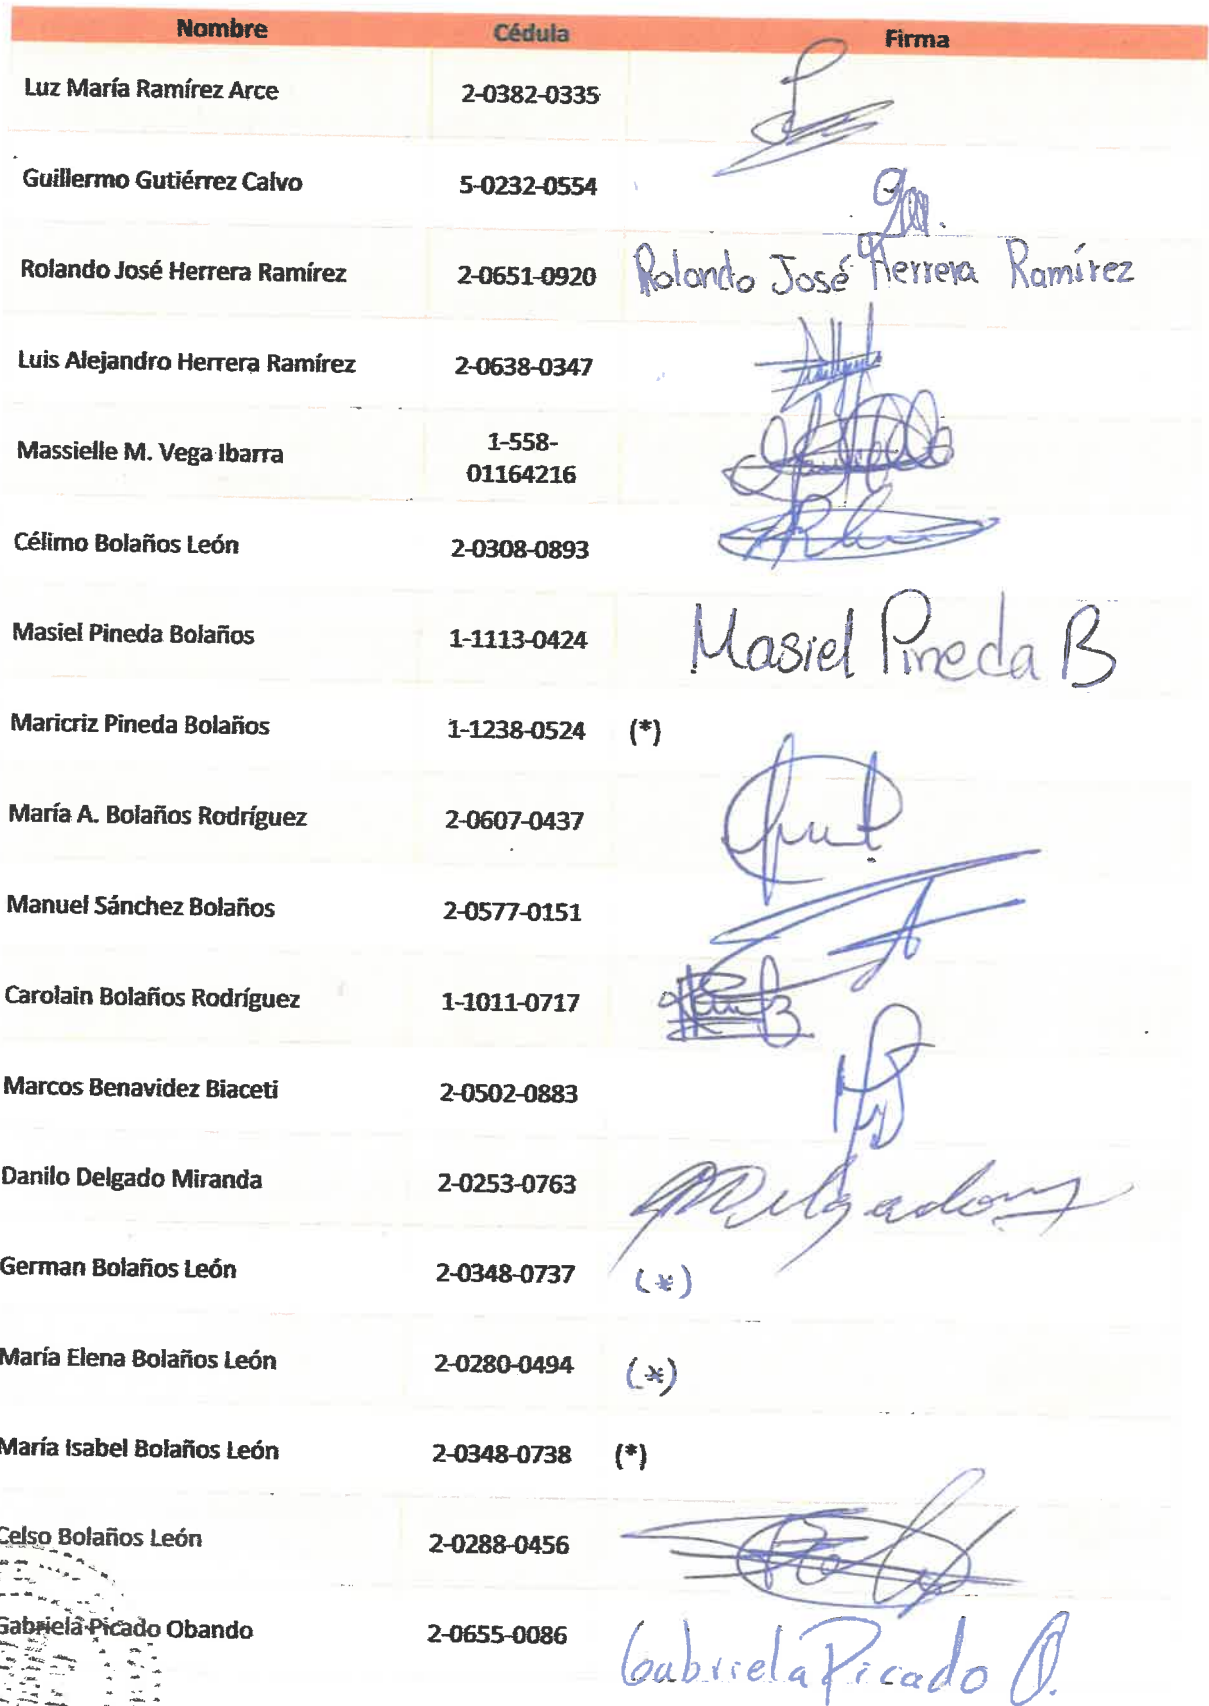 Nombre Cédula Firma
Luz María Ramírez Arce 2-0382-0335
Guillermo Gutiérrez Calvo 5-0232-0554
Rolando José Herrera Ramírez 2-0651-0920 Rolando José Herrera Ramírez
Luis Alejandro Herrera Ramírez 2-0638-0347
Massielle M. Vega Ibarra 1-558-
01164216
Célimo Bolaños León 2-0308-0893
Masiel Pineda Bolaños 1-1113-0424 Masiel Pineda B
Maricriz Pineda Bolaños 1-1238-0524 (*)
María A. Bolaños Rodríguez 2-0607-0437
Manuel Sánchez Bolaños 2-0577-0151
Carolain Bolaños Rodríguez 1-1011-0717
Marcos Benavidez Biaceti 2-0502-0883
Danilo Delgado Miranda 2-0253-0763 Delgado
German Bolaños León 2-0348-0737 (*)
María Elena Bolaños León 2-0280-0494 (*)
María Isabel Bolaños León 2-0348-0738 (*)
Celso Bolaños León 2-0288-0456
Gabriela Picado Obando 2-0655-0086 Gabriela Picado O.